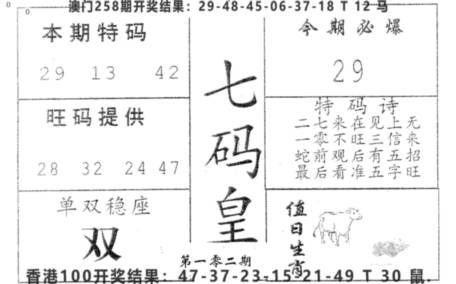 澳门258期开奖结果：29-48-45-06-37-18 T 12 马
本期特码
29 13 42
旺码提供
28 32 24 47
单双稳座
双
七码皇
第一零二期
今期必爆
29
特码诗
二七来在见上无
一零不旺三信来
蛇前观后有五招
最后看准五字旺
值日生肖
香港100开奖结果：47-37-23-15-21-49 T 30 鼠.